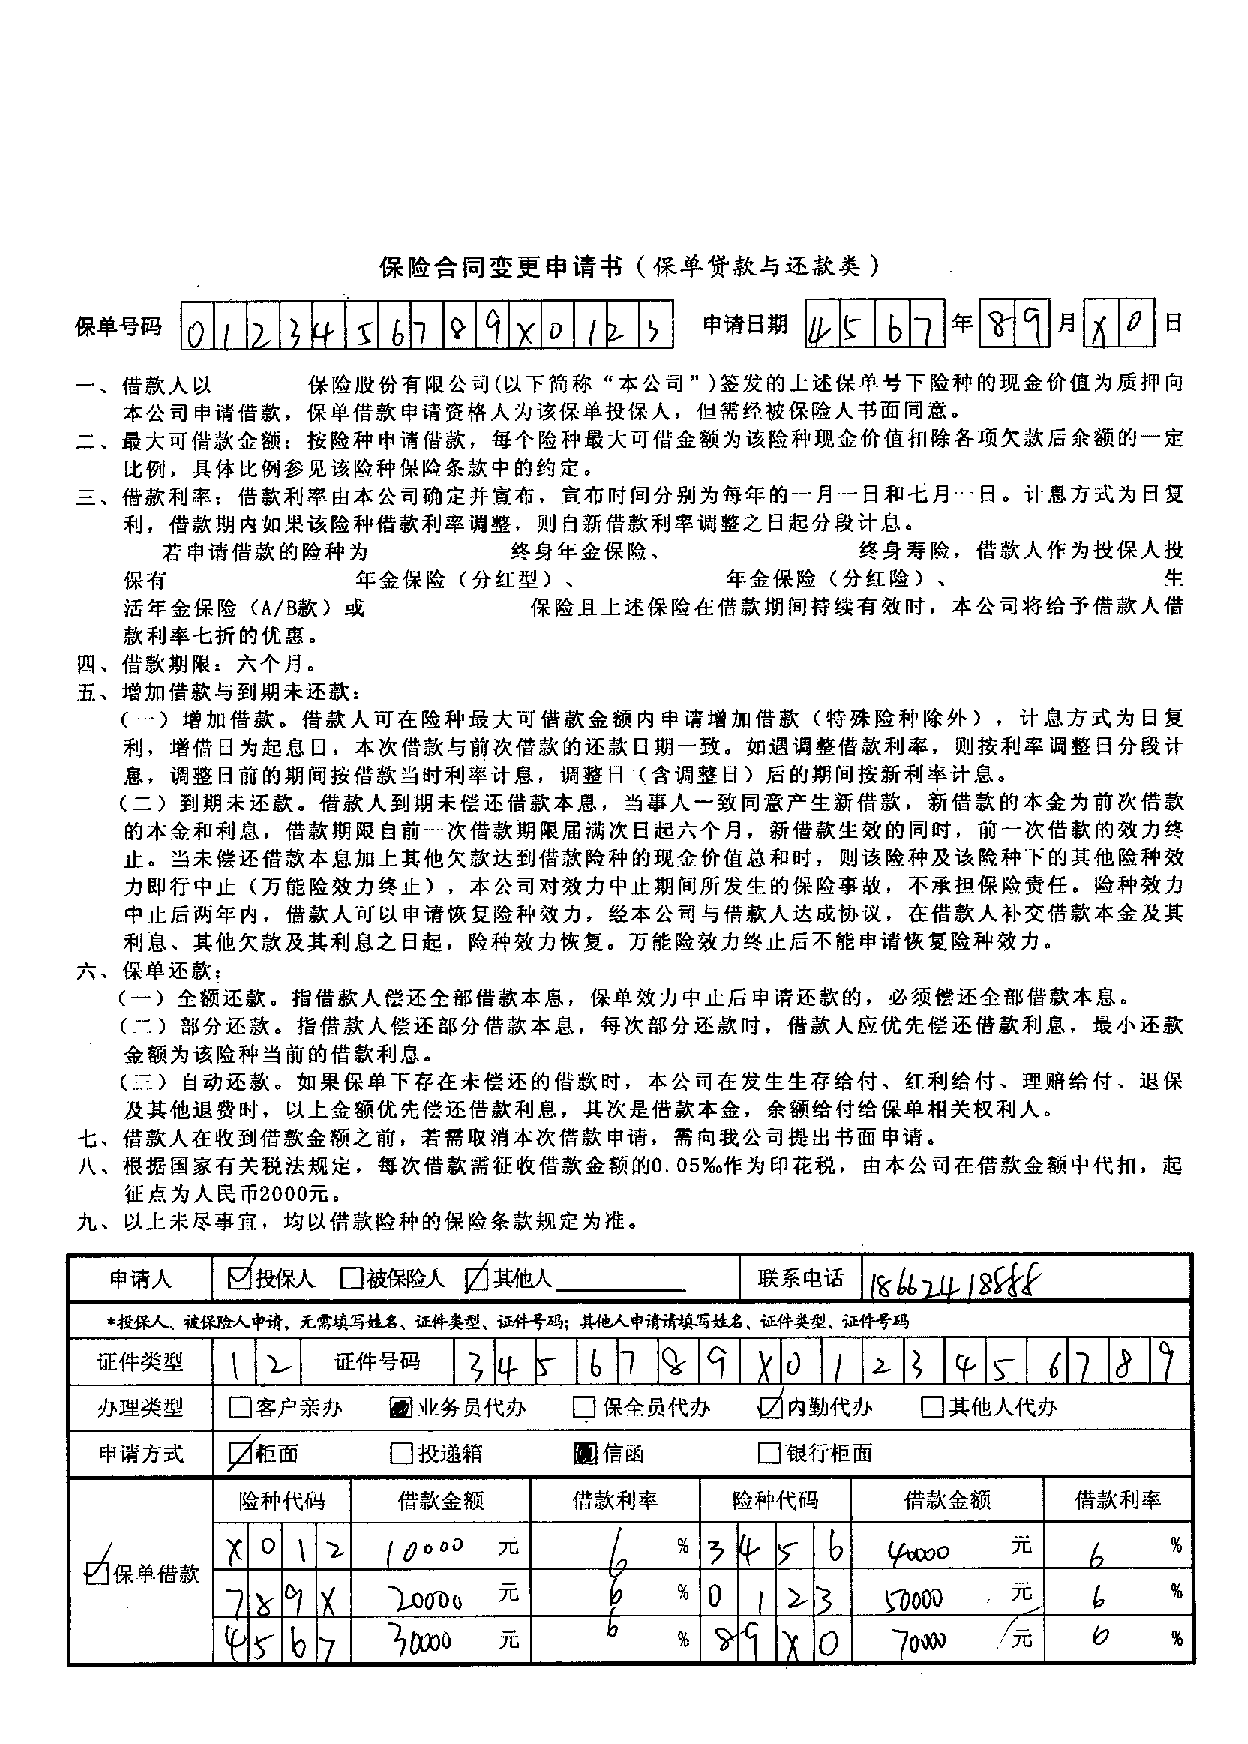 保险合同变更申请书（保单贷款与还款类）
保单号码 0123456789X0123 申请日期 4567年89月X0日
一、借款人以 保险股份有限公司(以下简称“本公司”)签发的上述保单号下险种的现金价值为质押向
本公司申请借款，保单借款申请资格人为该保单投保人，但需经被保险人书面同意。
二、最大可借款金额：按险种申请借款，每个险种最大可借金额为该险种现金价值扣除各项欠款后余额的一定
比例，具体比例参见该险种保险条款中的约定。
三、借款利率：借款利率由本公司确定并宣布，宣布时间分别为每年的一月一日和七月一日。计息方式为日复
利，借款期内如果该险种借款利率调整，则自新借款利率调整之日起分段计息。
若申请借款的险种为 终身年金保险、 终身寿险，借款人作为投保人投
保有 年金保险（分红型）、 年金保险（分红险）、 生
活年金保险（A/B款）或 保险且上述保险在借款期间持续有效时，本公司将给予借款人借
款利率七折的优惠。
四、借款期限：六个月。
五、增加借款与到期未还款：
（一）增加借款。借款人可在险种最大可借款金额内申请增加借款（特殊险种除外），计息方式为日复
利，增借日为起息日，本次借款与前次借款的还款日期一致。如遇调整借款利率，则按利率调整日分段计
息，调整日前的期间按借款当时利率计息，调整日（含调整日）后的期间按新利率计息。
（二）到期未还款。借款人到期未偿还借款本息，当事人一致同意产生新借款，新借款的本金为前次借款
的本金和利息，借款期限自前一次借款期限届满次日起六个月，新借款生效的同时，前一次借款的效力终
止。当未偿还借款本息加上其他欠款达到借款险种的现金价值总和时，则该险种及该险种下的其他险种效
力即行中止（万能险效力终止），本公司对效力中止期间所发生的保险事故，不承担保险责任。险种效力
中止后两年内，借款人可以申请恢复险种效力，经本公司与借款人达成协议，在借款人补交借款本金及其
利息、其他欠款及其利息之日起，险种效力恢复。万能险效力终止后不能申请恢复险种效力。
六、保单还款：
（一）全额还款。指借款人偿还全部借款本息，保单效力中止后申请还款的，必须偿还全部借款本息。
（二）部分还款。指借款人偿还部分借款本息，每次部分还款时，借款人应优先偿还借款利息，最小还款
金额为该险种当前的借款利息。
（三）自动还款。如果保单下存在未偿还的借款时，本公司在发生生存给付、红利给付、理赔给付、退保
及其他退费时，以上金额优先偿还借款利息，其次是借款本金，余额给付给保单相关权利人。
七、借款人在收到借款金额之前，若需取消本次借款申请，需向我公司提出书面申请。
八、根据国家有关税法规定，每次借款需征收借款金额的0.05‰作为印花税，由本公司在借款金额中代扣，起
征点为人民币2000元。
九、以上未尽事宜，均以借款险种的保险条款规定为准。
申请人 投保人 被保险人 其他人 联系电话 18662418588
*投保人、被保险人申请，无需填写姓名、证件类型、证件号码；其他人申请请填写姓名、证件类型、证件号码
证件类型 12 证件号码 3456789X0123456789
办理类型 客户亲办 业务员代办 保全员代办 内勤代办 其他人代办
申请方式 柜面 投递箱 信函 银行柜面
险种代码 借款金额 借款利率 险种代码 借款金额 借款利率
X012 10000 元 6 % 3456 40000 元 6 %
保单借款 789X 20000 元 6 % 0123 50000 元 6 %
4567 30000 元 6 % 89X0 70000 元 6 %